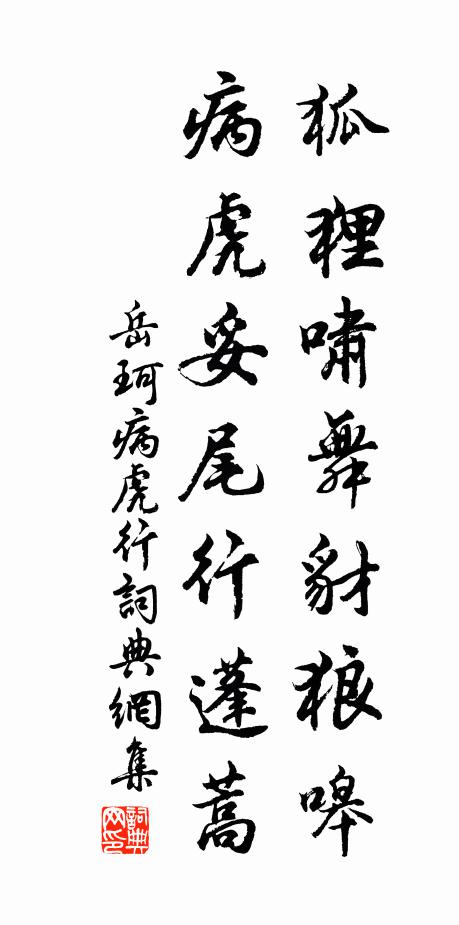 狐狸嘯舞豺狼嗥
病虎妥尾行蓬蒿
岳珂病虎行詞典網集
詞典網印